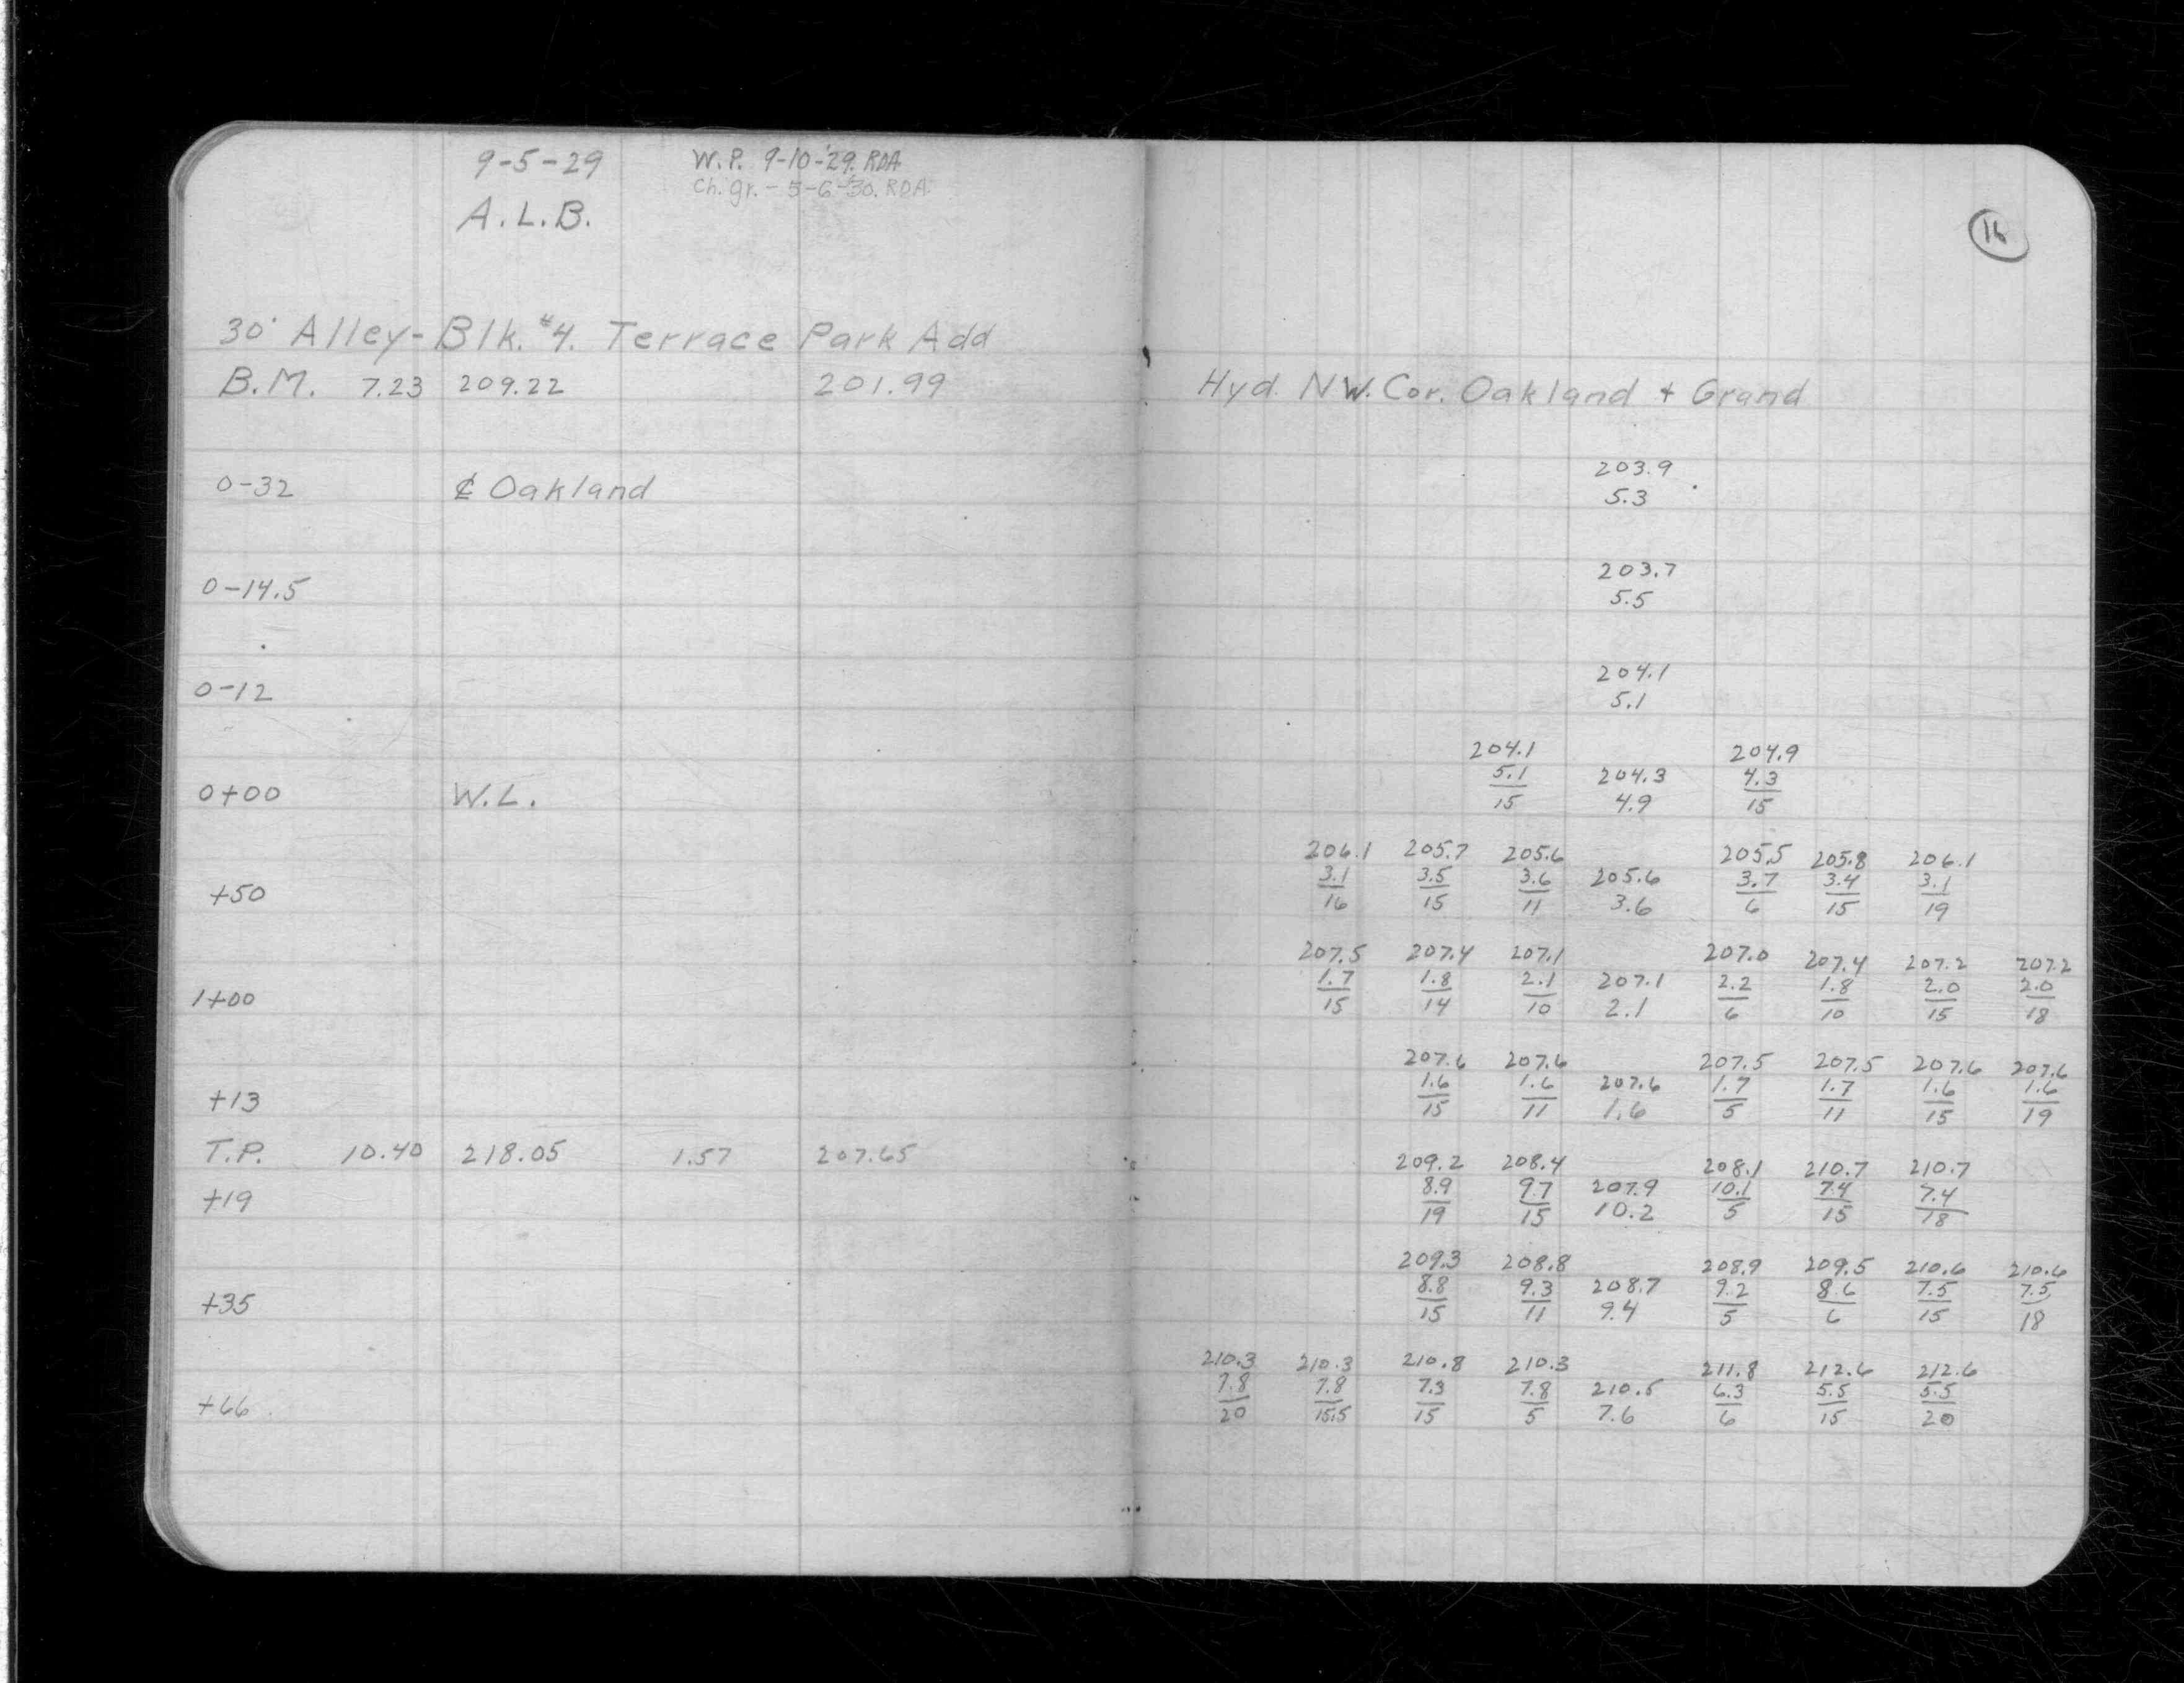 9-5-29 W.P. 9-10-'29. RDA
Ch. gr. - 5-6-30. RDA
A.L.B.
16
30' Alley-Blk. #4. Terrace Park Add
B.M. 7.23 209.22 201.99 Hyd. N.W. Cor. Oakland + Grand
203.9
0-32 ₵ Oakland 5.3
203.7
0-14.5 5.5
204.1
0-12 5.1
204.1 204.9
5.1 204.3 4.3
0+00 W.L. 15 4.9 15
206.1 205.7 205.6 205.5 205.8 206.1
3.1 3.5 3.6 205.6 3.7 3.4 3.1
+50 16 15 11 3.6 6 15 19
207.5 207.4 207.1 207.0 207.4 207.2 207.2
1.7 1.8 2.1 207.1 2.2 1.8 2.0 2.0
1+00 15 14 10 2.1 6 10 15 18
207.6 207.6 207.5 207.5 207.6 207.6
1.6 1.6 207.6 1.7 1.7 1.6 1.6
+13 15 11 1.6 5 11 15 19
T.P. 10.40 218.05 1.57 207.65
209.2 208.4 208.1 210.7 210.7
8.9 9.7 207.9 10.1 7.4 7.4
+19 19 15 10.2 5 15 18
209.3 208.8 208.9 209.5 210.6 210.6
8.8 9.3 208.7 9.2 8.6 7.5 7.5
+35 15 11 9.4 5 6 15 18
210.3 210.3 210.8 210.3 211.8 212.6 212.6
7.8 7.8 7.3 7.8 210.5 6.3 5.5 5.5
+66 20 15.5 15 5 7.6 6 15 20